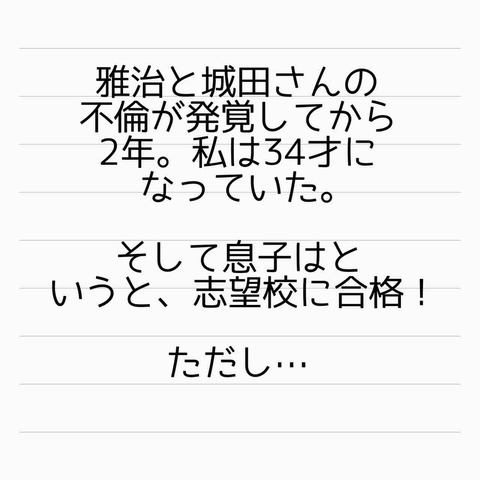 雅治と城田さんの
不倫が発覚してから
2年。私は34才に
なっていた。
そして息子はと
いうと、志望校に合格！
ただし…